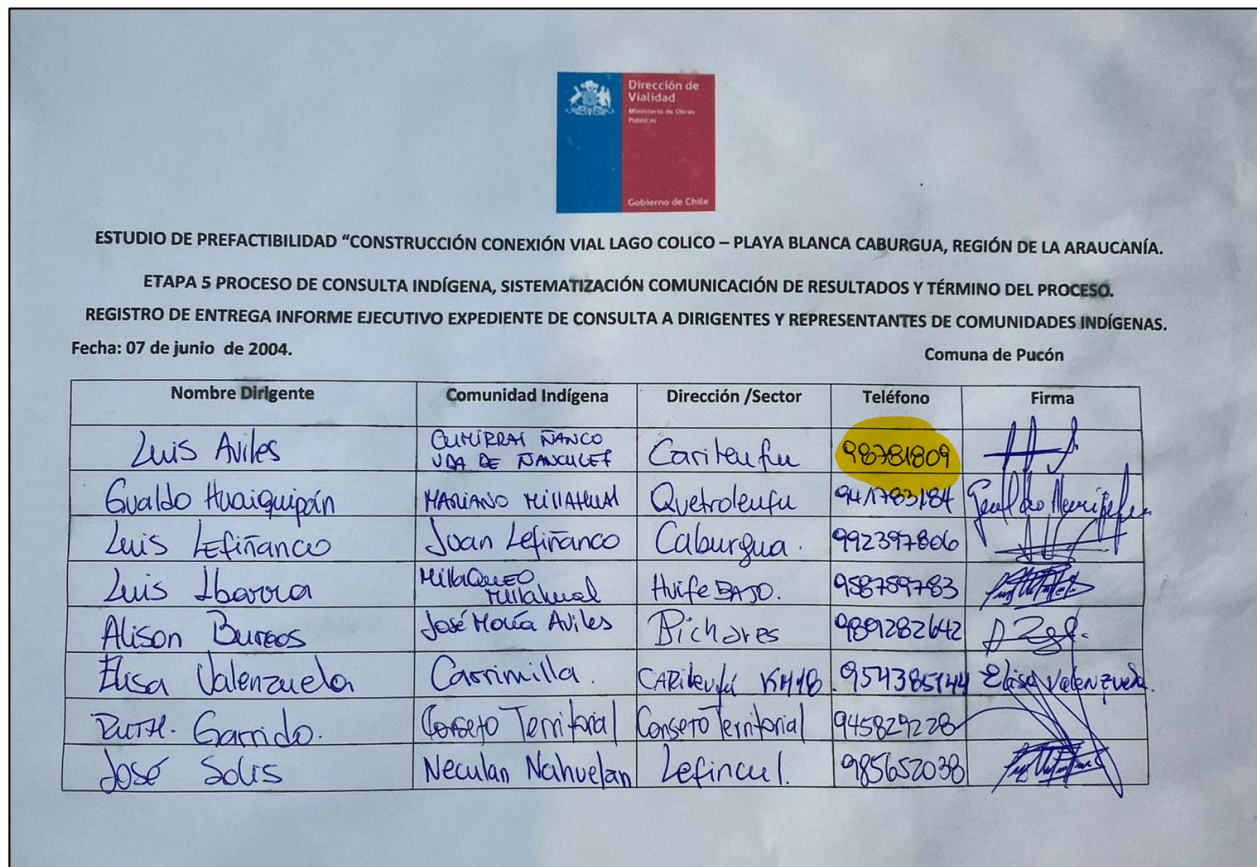 Dirección de
Vialidad
Ministerio de Obras
Públicas
Gobierno de Chile
ESTUDIO DE PREFACTIBILIDAD “CONSTRUCCIÓN CONEXIÓN VIAL LAGO COLICO – PLAYA BLANCA CABURGUA, REGIÓN DE LA ARAUCANÍA.
ETAPA 5 PROCESO DE CONSULTA INDÍGENA, SISTEMATIZACIÓN COMUNICACIÓN DE RESULTADOS Y TÉRMINO DEL PROCESO.
REGISTRO DE ENTREGA INFORME EJECUTIVO EXPEDIENTE DE CONSULTA A DIRIGENTES Y REPRESENTANTES DE COMUNIDADES INDÍGENAS.
Fecha: 07 de junio de 2004. Comuna de Pucón
Nombre Dirigente Comunidad Indígena Dirección /Sector Teléfono Firma
Luis Aviles ÑANCO VDA DE ÑANCULEF Cariteufu 98781809
Gualdo Huaiquipán MARIANO MILLAHUAL Quetroleufu 941783184
Luis Lefiñanco Juan Lefiñanco Caburgua. 992397806
Luis Ibarra MillaQUEO Millahual Huife BAJO. 958759783
Alison Burgos José María Aviles Pichares 9891282642
Elisa Valenzuela Carrimilla. CARileufú KM18. 954385144 Elisa Valenzuela.
RUTH. Garrido. Consejo Territorial Consejo Territorial 945829228
José Solis Neculan Nahuelan Lefincul. 985652038